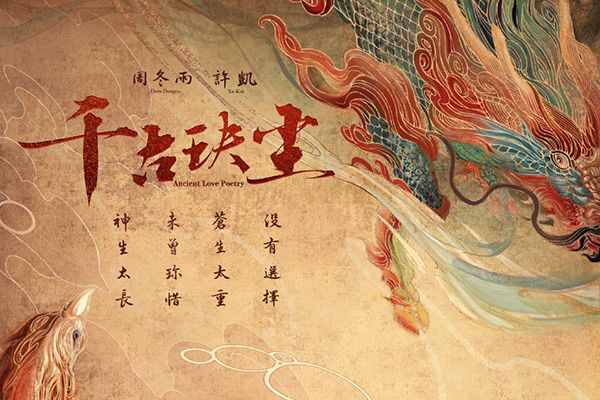 周冬雨 許凱
Zhou Dongyu Xu Kai
千古玦尘
Ancient Love Poetry
神生太長
未曾珍惜
蒼生太重
没有選擇